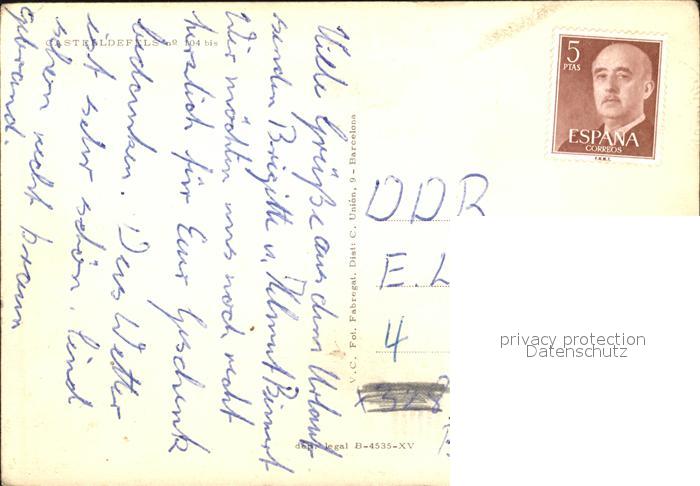 CASTELLDEFELS nº 104 bis
Viele Grüße aus dem Urlaub
senden Brigitte u. Helmut
Wir möchten uns noch recht
herzlich für Euer Geschenk
bedanken. Das Wetter
ist sehr schön. Sind
schon recht braun
gebrand.
V.C. Fot. Fabregat. Dist: C. Unión, 9 - Barcelona
5
PTAS
ESPAÑA
CORREOS
F.N.M.T.
DDR
E.L
4
legal B-4535-XV
privacy protection
Datenschutz